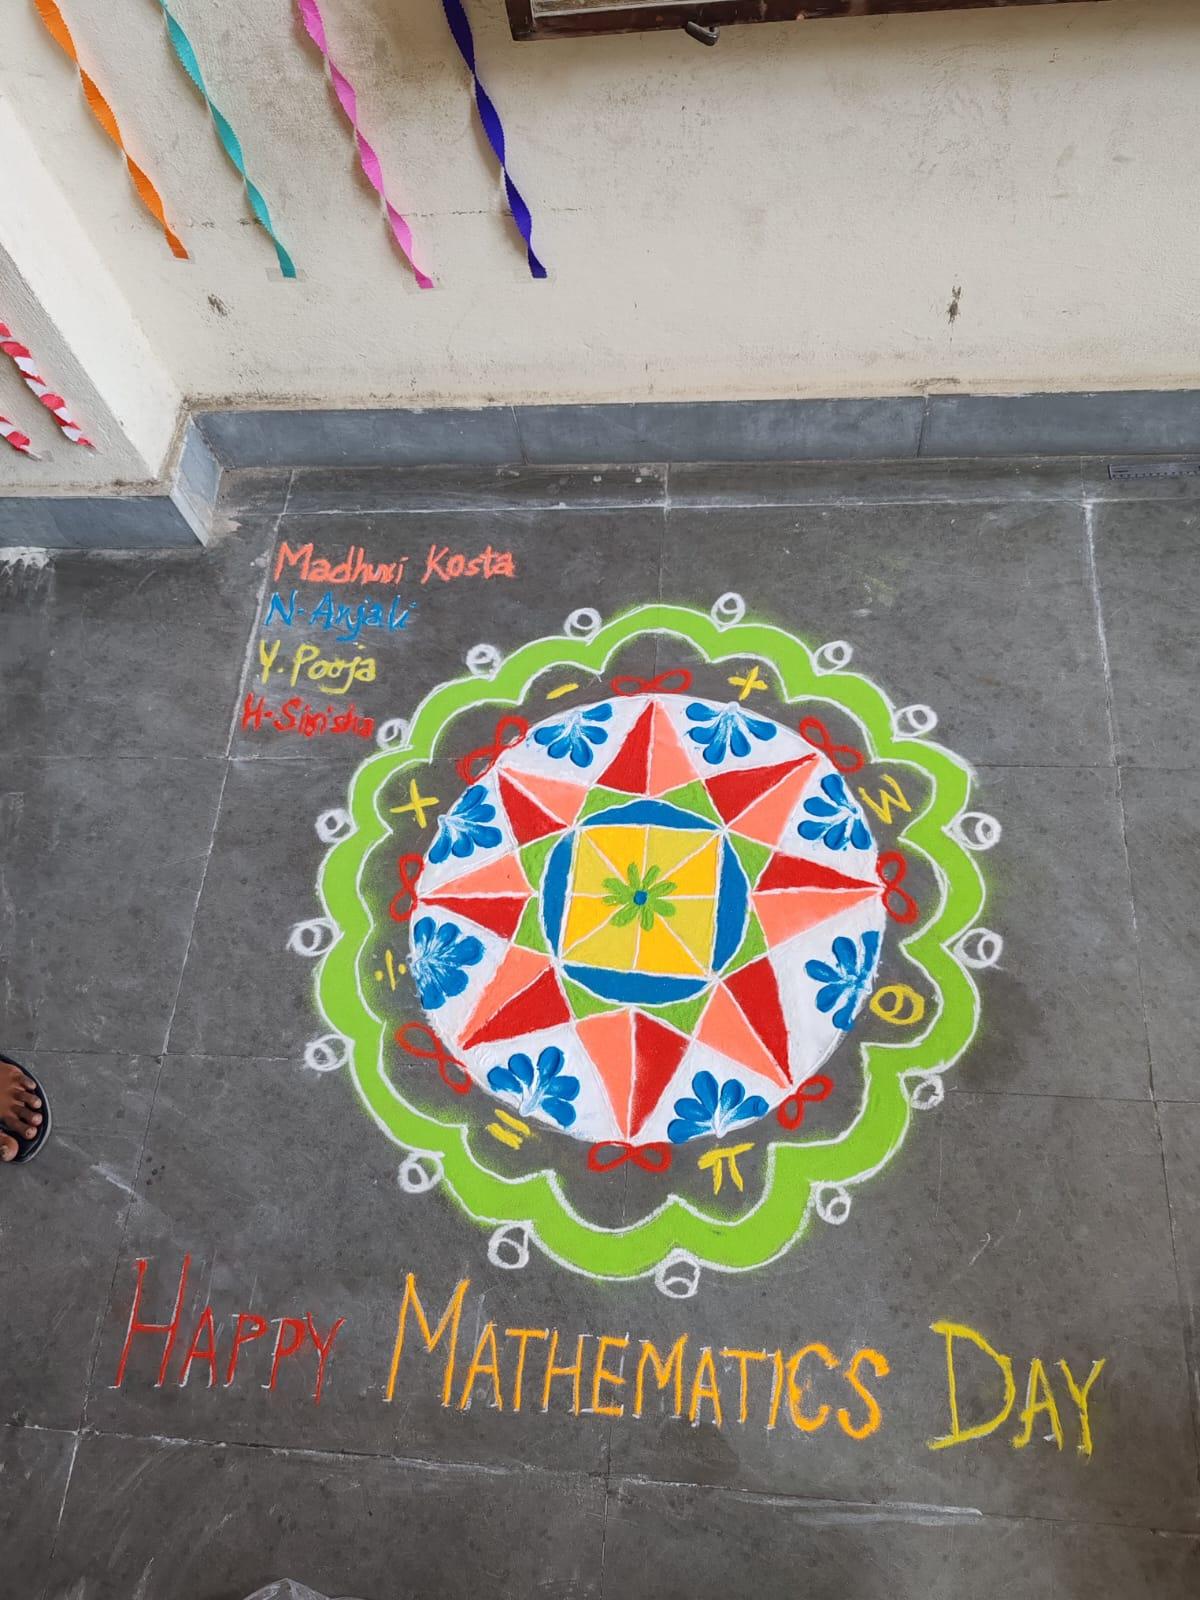 Madhuri Kosta
N-Anjali
Y. Pooja
H-Sinisha
- +
× Σ
÷ θ
= π
HAPPY MATHEMATICS DAY